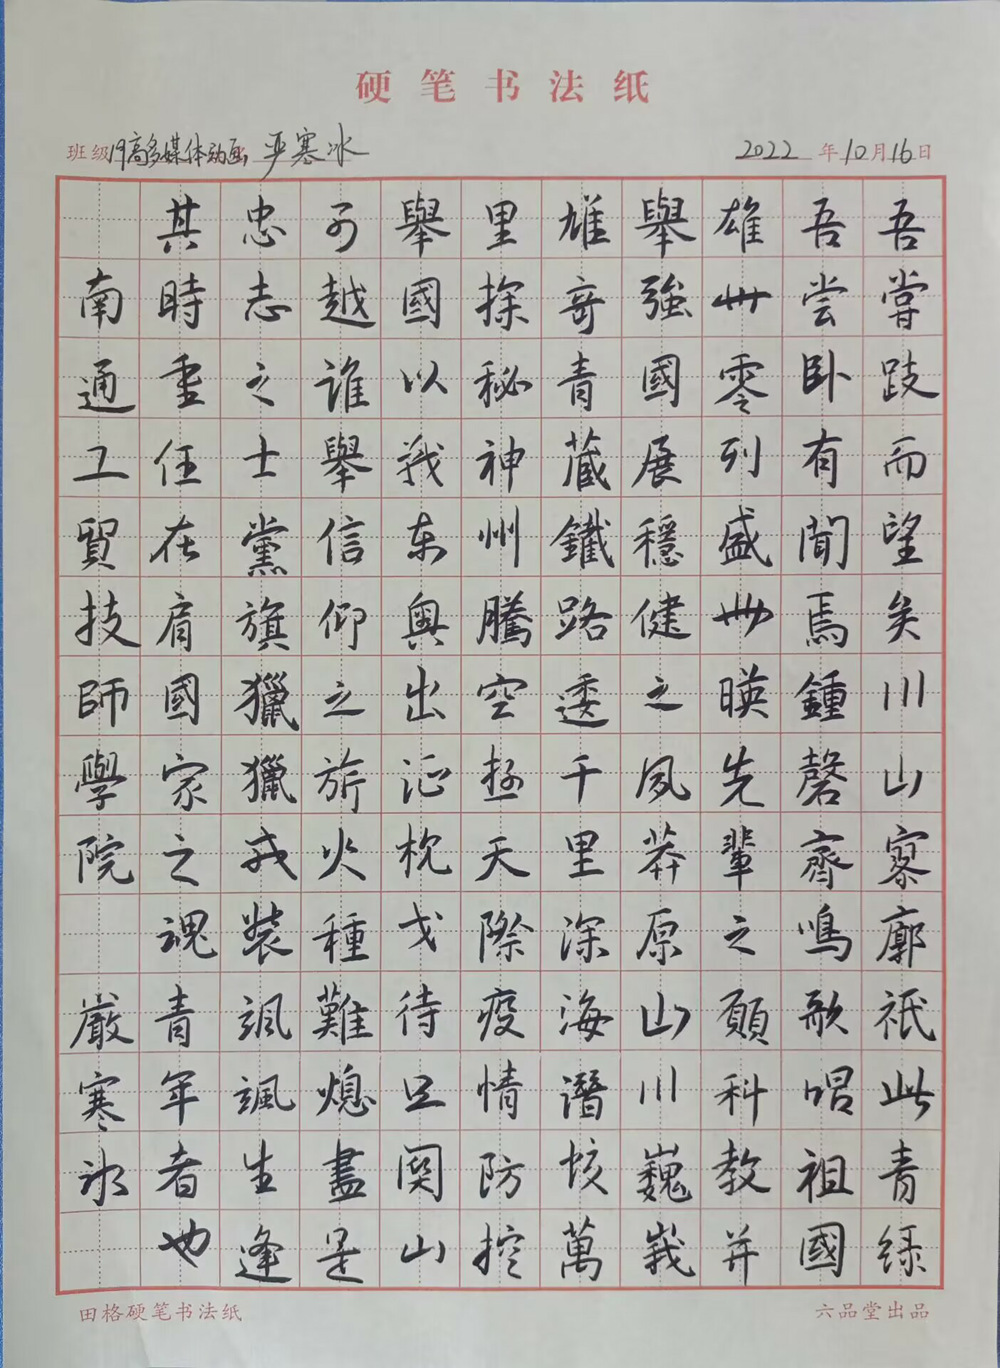 硬笔书法纸
班级 19高多媒体动画 严寒冰 2022年10月16日
吾嘗跂而望矣川山寥廓祇此青绿
吾尝卧有聞焉鍾磬齊鳴歌唱祖國
雄卅零列盛卅暎先輩之願科教并
舉強國展穩健之夙莽原山川巍峩
雄奇青蔵鐵路逶千里深海潛垓萬
里探秘神州騰空拯天際疫情防控
舉國以我东奥出征枕戈待旦関山
可越誰舉信仰之旂火種難熄盡是
忠志之士黨旗獵獵戎裝颯颯生逢
其時重任在肩國家之魂青年者也
南通工貿技師學院 嚴寒冰
田格硬笔书法纸 六品堂出品